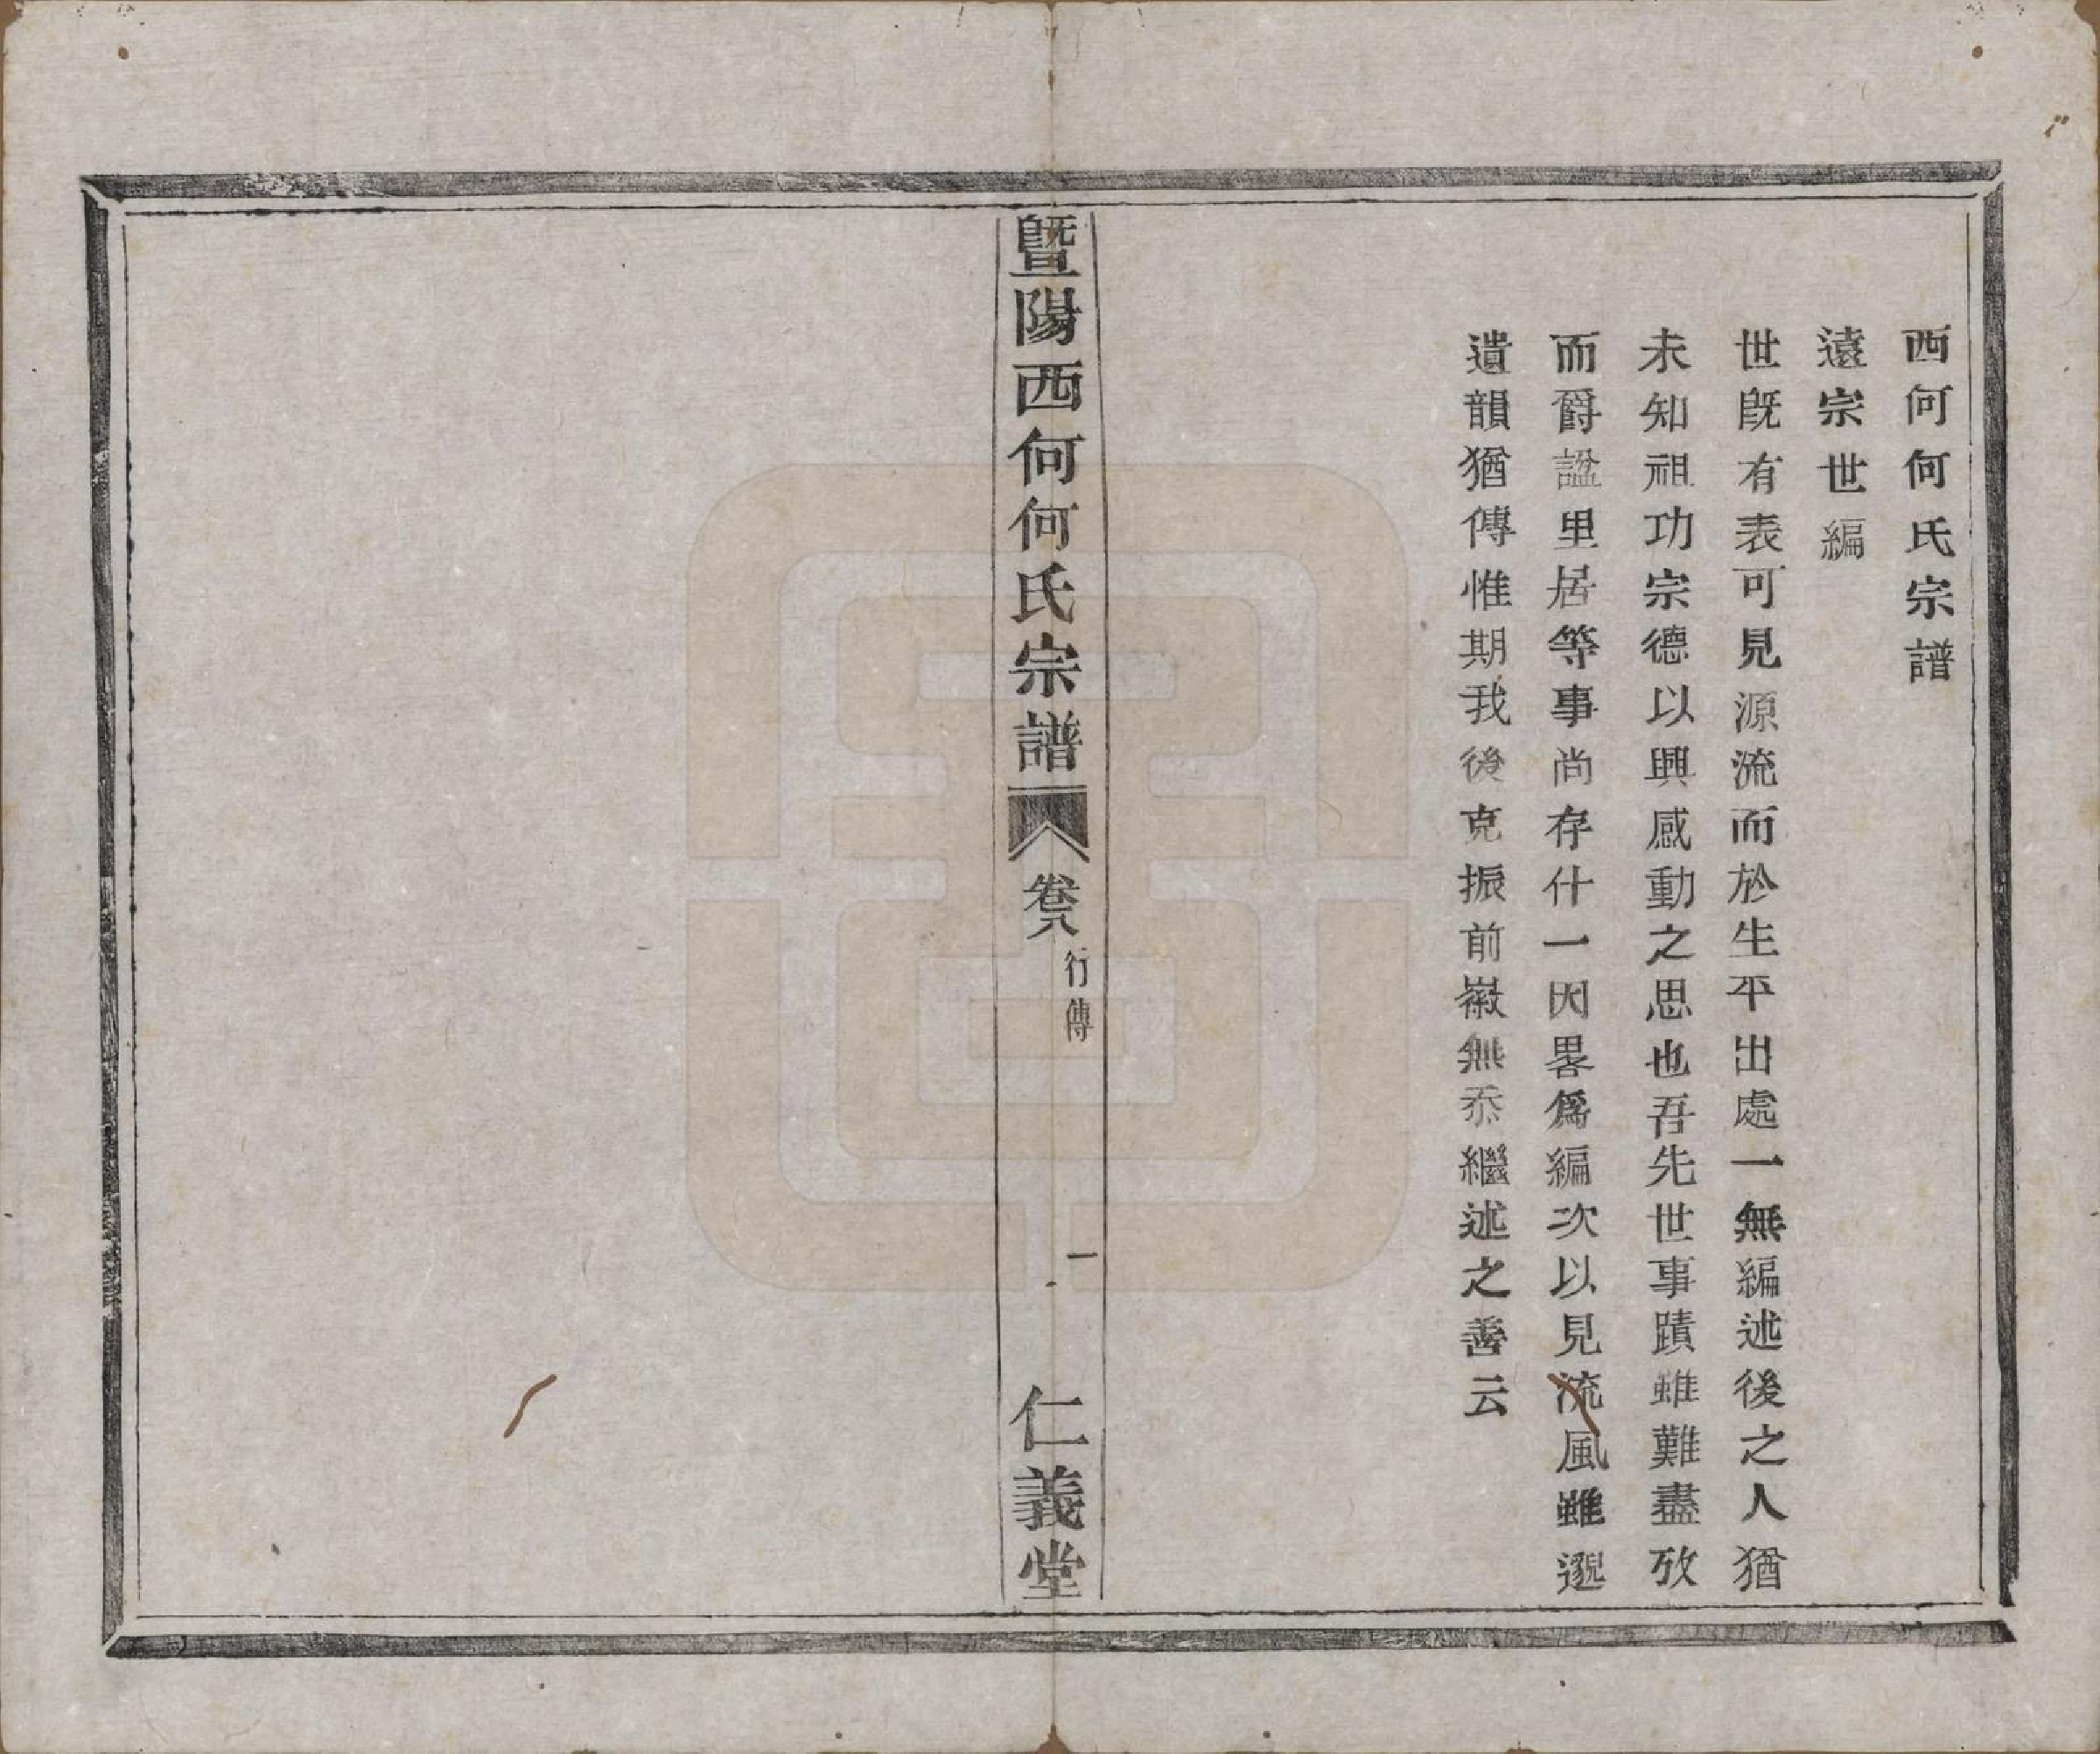 西何何氏宗譜
遠宗世編
世旣有表可見源流而於生平出處一無編述後之人猶
未知祖功宗德以興感動之思也吾先世事蹟雖難盡攷
而爵諡里居等事尚存什一因畧爲編次以見流風雖邈
遺韻猶傳惟期我後克振前徽無忝繼述之善云
暨陽西何何氏宗譜 卷八 行傳 一 仁義堂